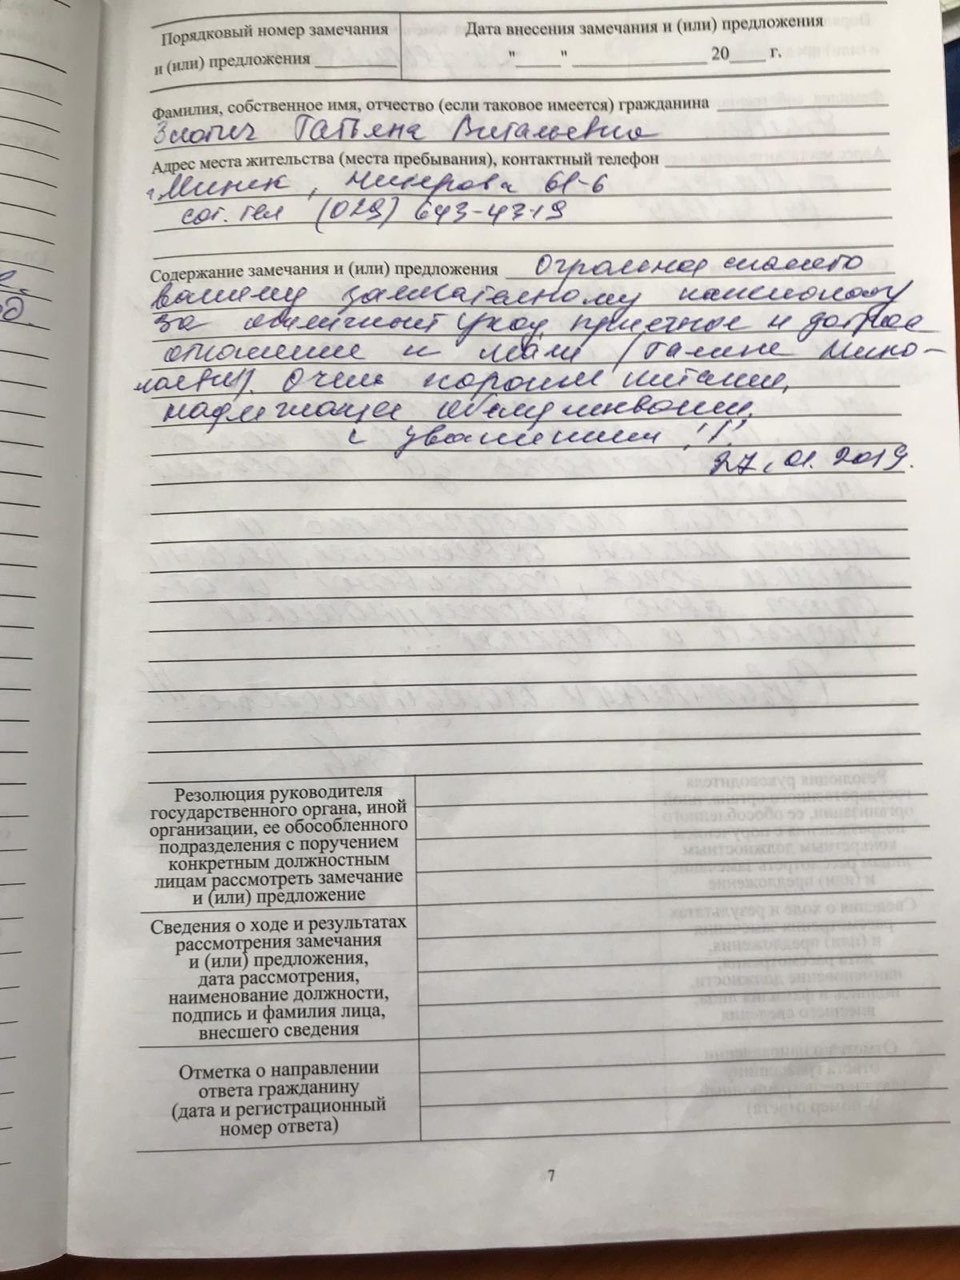 Порядковый номер замечания
и (или) предложения
Дата внесения замечания и (или) предложения
"____" ____________ 20___ г.
Фамилия, собственное имя, отчество (если таковое имеется) гражданина
Татьяна Витальевна
Адрес места жительства (места пребывания), контактный телефон
г. Минск, 61-6
сот. тел (029) 643-4719
Содержание замечания и (или) предложения Огромное спасибо
вашему замечательному пансионату
за отличный уход, приветное и доброе
отношение к маме (Галине Нико-
лаевне). Очень хорошее питание,
надлежащее обслуживание.
с уважением !!!
27.01.2019.
Резолюция руководителя
государственного органа, иной
организации, ее обособленного
подразделения с поручением
конкретным должностным
лицам рассмотреть замечание
и (или) предложение
Сведения о ходе и результатах
рассмотрения замечания
и (или) предложения,
дата рассмотрения,
наименование должности,
подпись и фамилия лица,
внесшего сведения
Отметка о направлении
ответа гражданину
(дата и регистрационный
номер ответа)
7